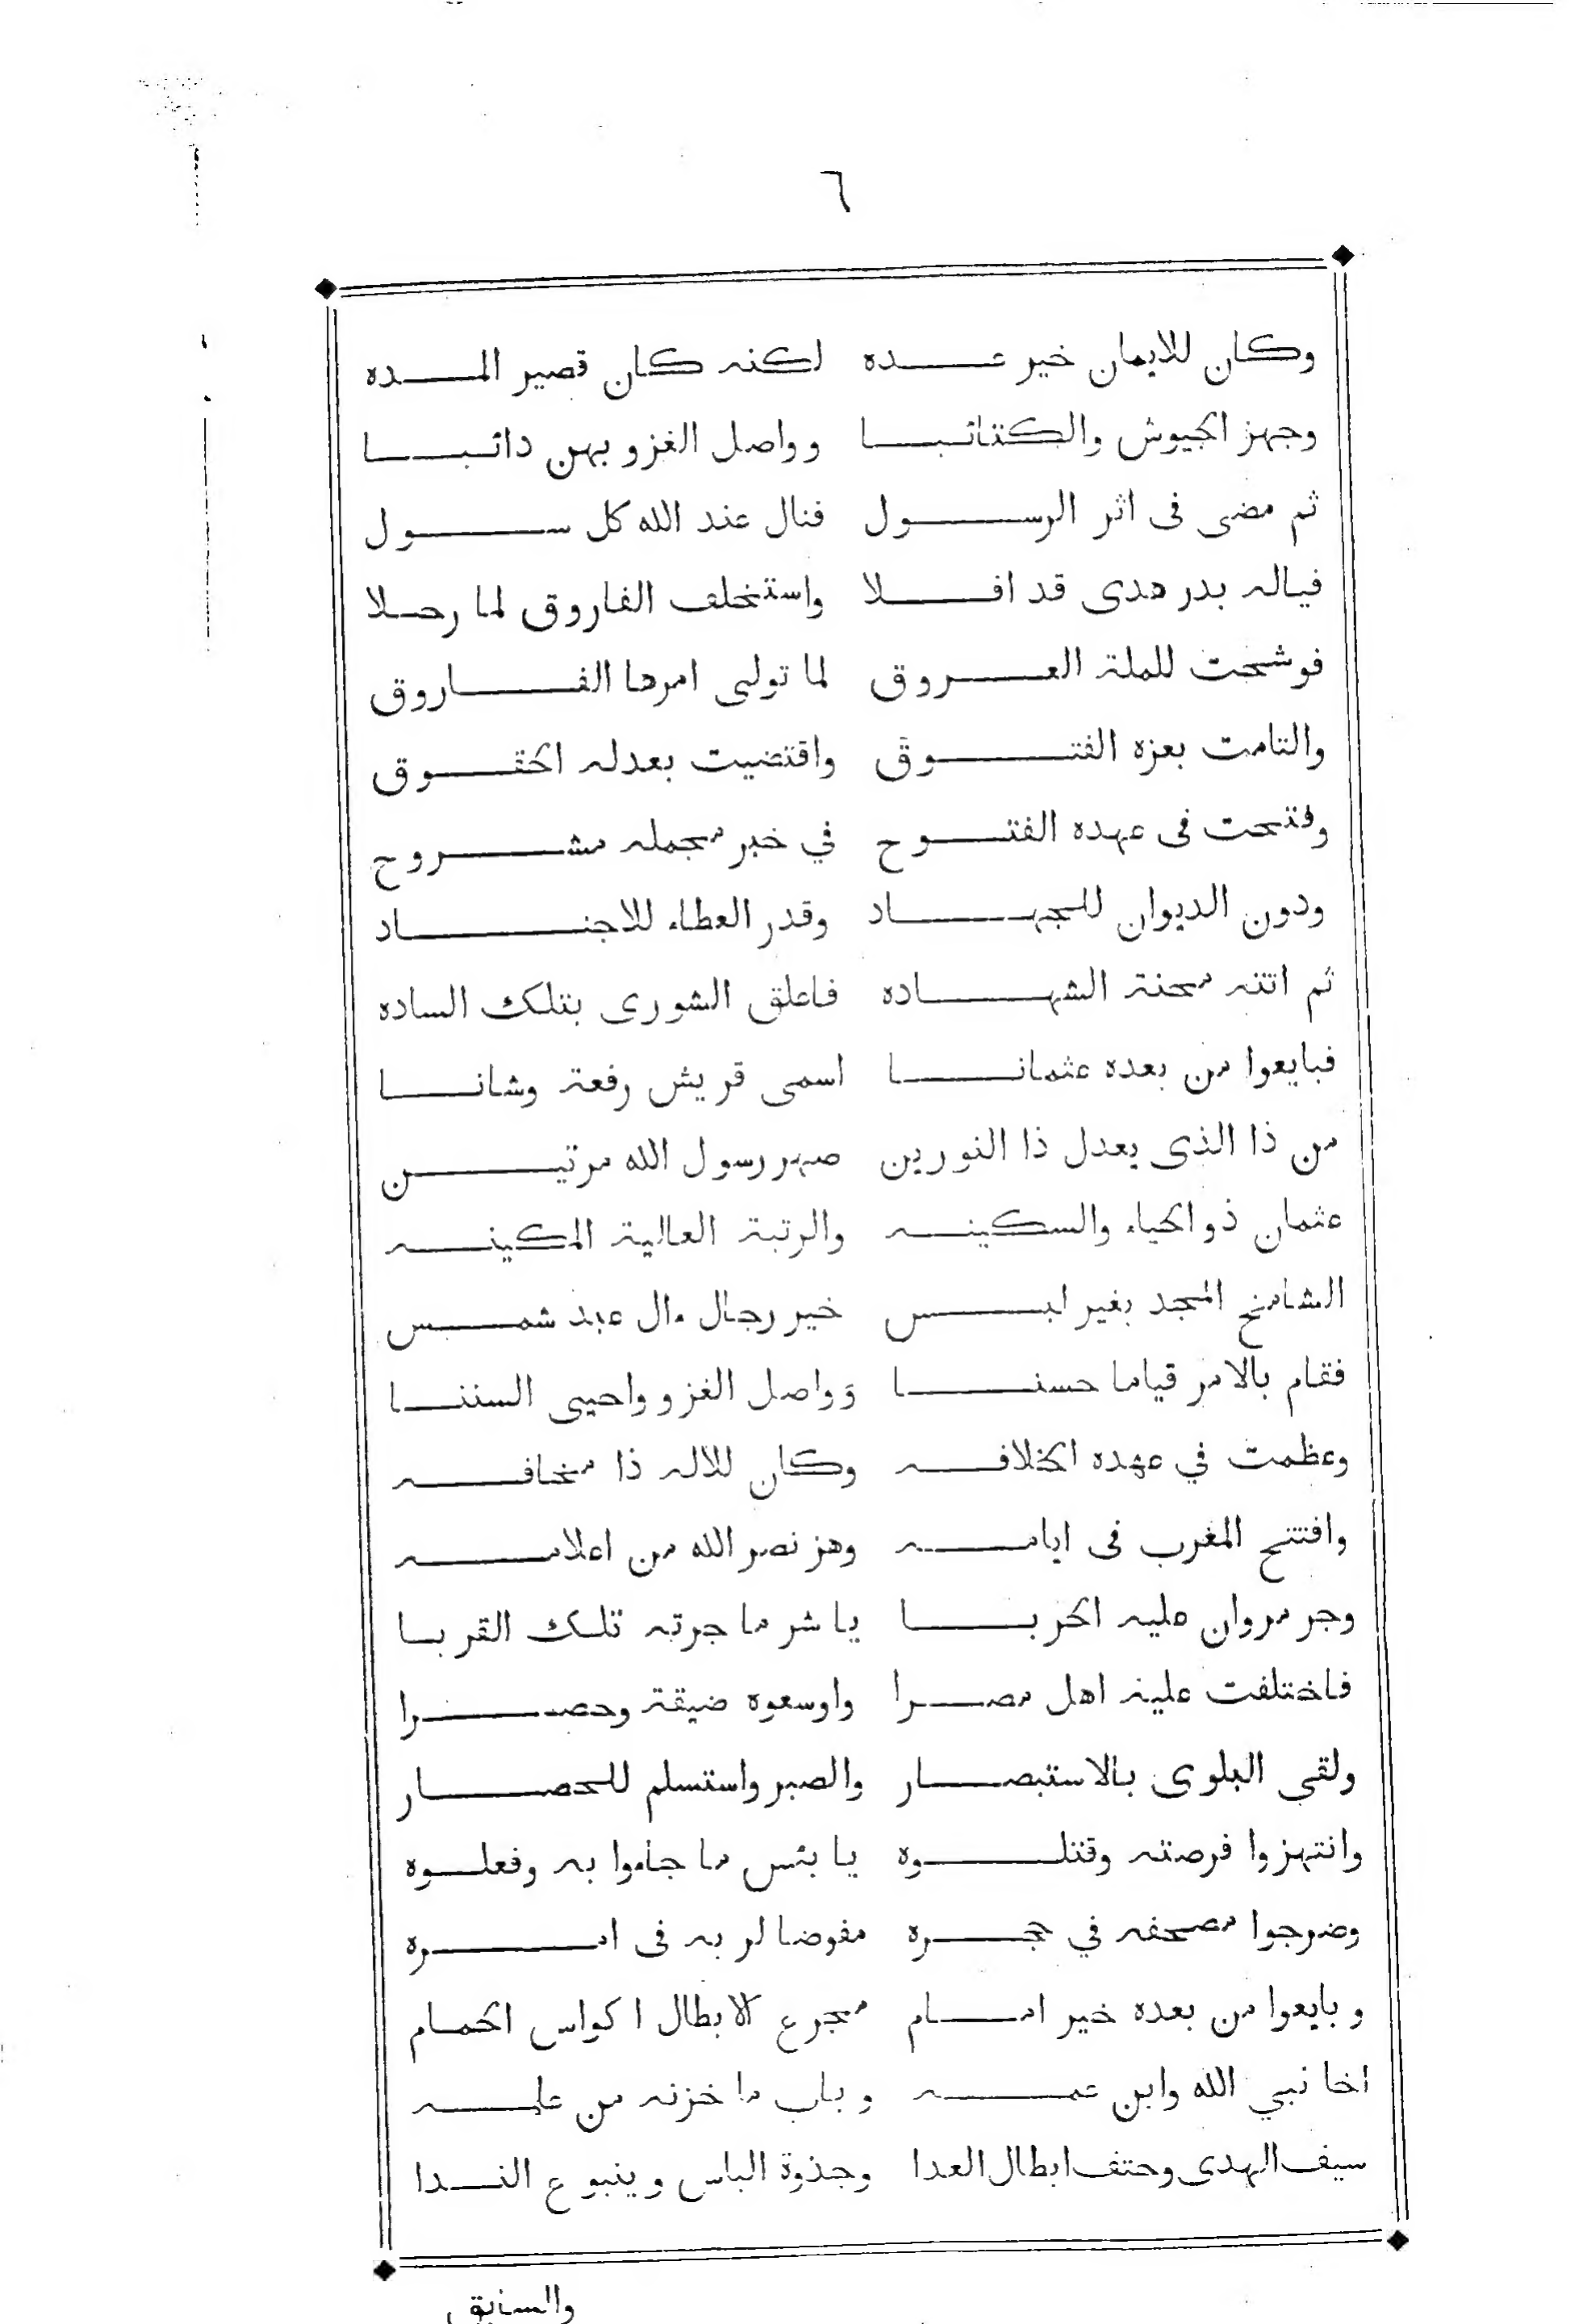 ٦
وكان للايمان خير عده لكنه كان قصير المده
وجهز الجيوش والكتائبا وواصل الغزو بهن دائبا
ثم مضى فى اثر الرسول فنال عند الله كل سول
فياله بدر هدى قد افلا واستخلف الفاروق لما رحلا
فوشجت للملة العروق لما تولى امرها الفاروق
والتامت بعزه الفتوق واقتضيت بعدله الحقوق
وفتحت فى عهده الفتوح في خبر مجمله مشروح
ودون الديوان للجهاد وقدر العطاء للاجناد
ثم اتته محنة الشهاده فاعلق الشورى بتلك الساده
فبايعوا من بعده عثمانا اسمى قريش رفعة وشانا
من ذا الذى يعدل ذا النورين صهر رسول الله مرتين
عثمان ذو الحياء والسكينه والرتبة العالية المكينه
الشامخ المجد بغير لبس خير رجال ءال عبد شمس
فقام بالامر قياما حسنا وواصل الغزو واحيى السننا
وعظمت في عهده الخلافه وكان للاله ذا مخافه
وافتتح المغرب فى ايامه وهز نصر الله من اعلامه
وجر مروان عليه الحربا يا شر ما جرته تلك القربا
فاختلفت عليه اهل مصرا واوسعوه ضيقة وحصرا
ولقى البلوى بالاستبصار والصبر واستسلم للحصار
وانتهزوا فرصته وقتلوه يا بئس ما جاءوا به وفعلوه
وضرجوا مصحفه في حجره مفوضا لربه فى امره
وبايعوا من بعده خير امام مجرع الابطال اكواس الحمام
اخا نبي الله وابن عمه وباب ما خزنه من علمه
سيف الهدى وحتف ابطال العدا وجذوة الباس وينبوع الندا
والسابق